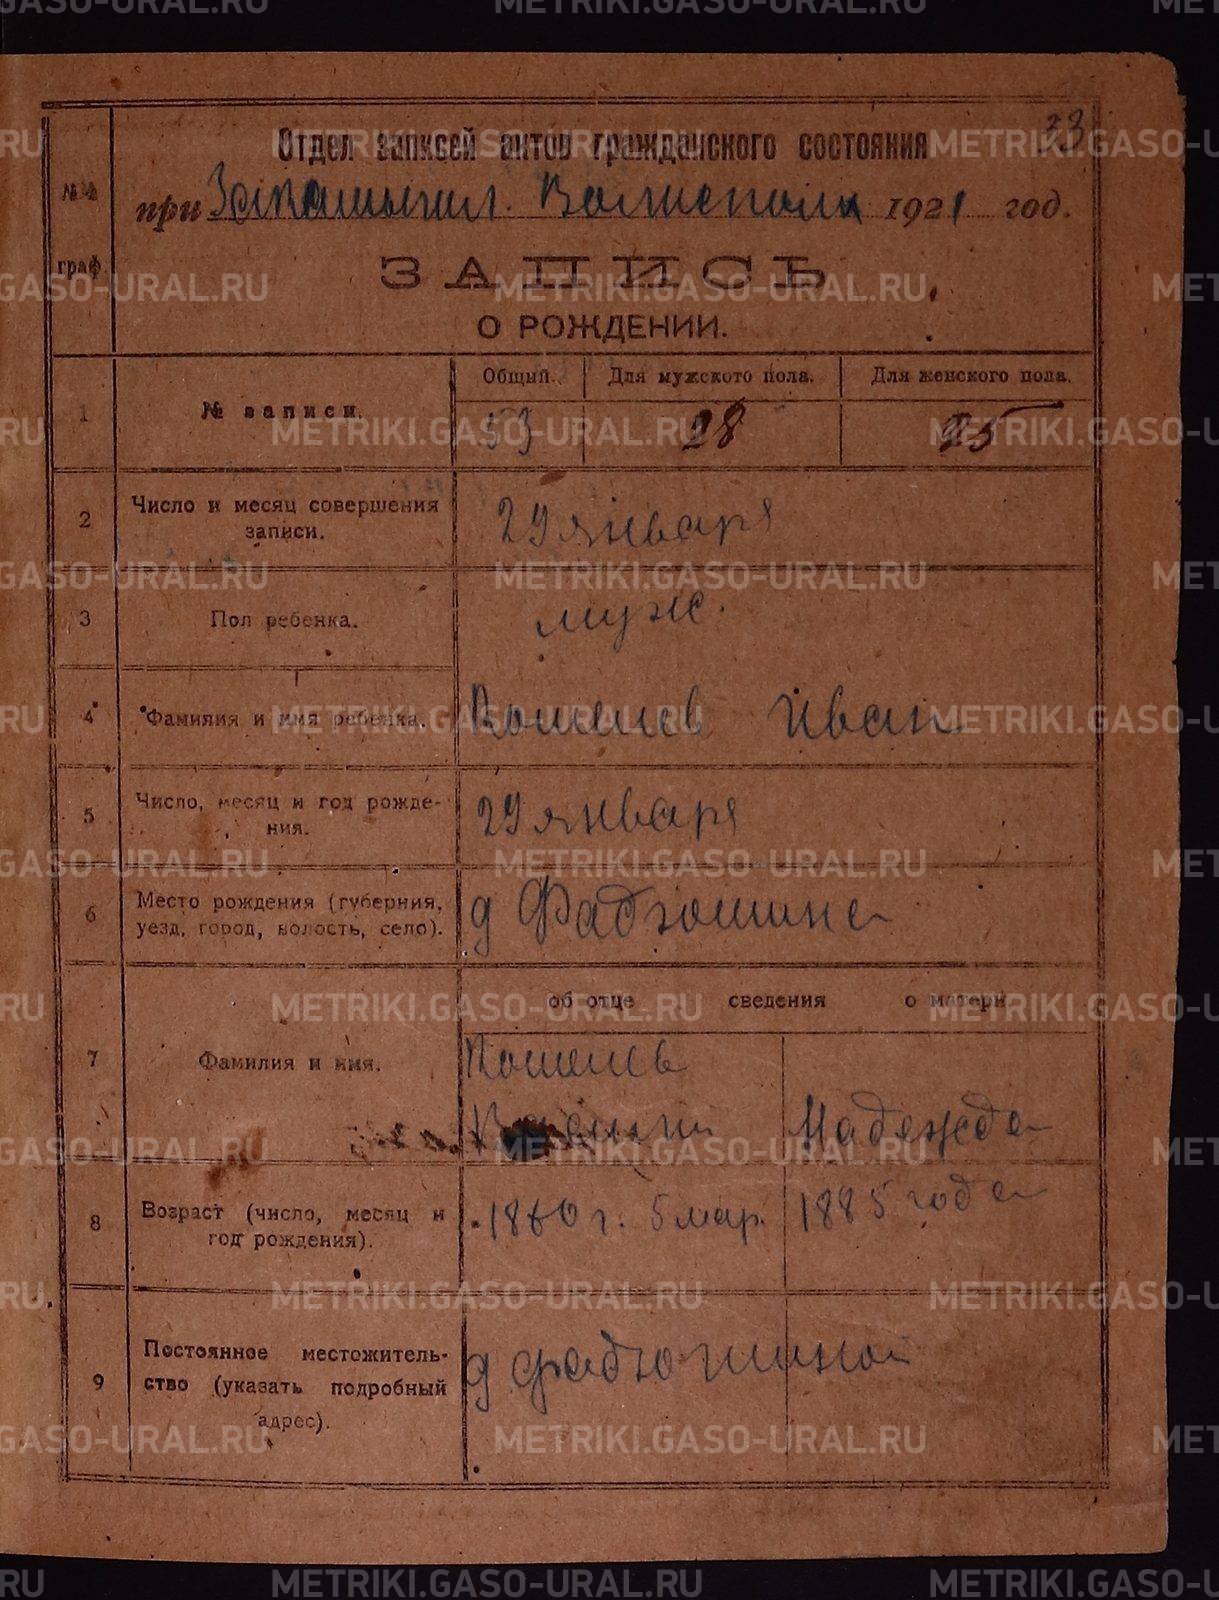 33
Отдел записей актов гражданского состояния
при Волисполк 1921 год.
№№
граф.
ЗАПИСЬ
О РОЖДЕНИИ.
Общый. Для мужского пола. Для женского пола.
1 № записи. 53 28 25
2 Число и месяц совершения
записи. 29 января
3 Пол ребенка. муж.
4 Фамилия и имя ребенка. Кошелев Иван
5 Число, месяц и год рожде-
ния. 29 января
6 Место рождения (губерния,
уезд, город, волость, село). д Фадюшина
об отце сведения о матери
7 Фамилия и имя. Кошелев
Надежда
8 Возраст (число, месяц и
год рождения). 5 мар. 1885 года
9 Постоянное местожитель-
ство (указать подробный
адрес). д Фадюшиной
METRIKI.GASO-URAL.RU